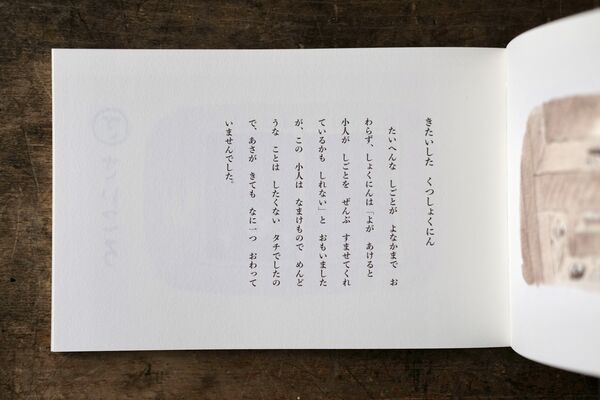 きたいした　くつしょくにん
たいへんな　しごとが　よなかまで　お
わらず、しょくにんは「よが　あけると
小人が　しごとを　ぜんぶ　すませてくれ
ているかも　しれない」と　おもいました
が、この　小人は　なまけもので　めんど
うな　ことは　したくない　タチでしたの
で、あさが　きても　なに一つ　おわって
いませんでした。